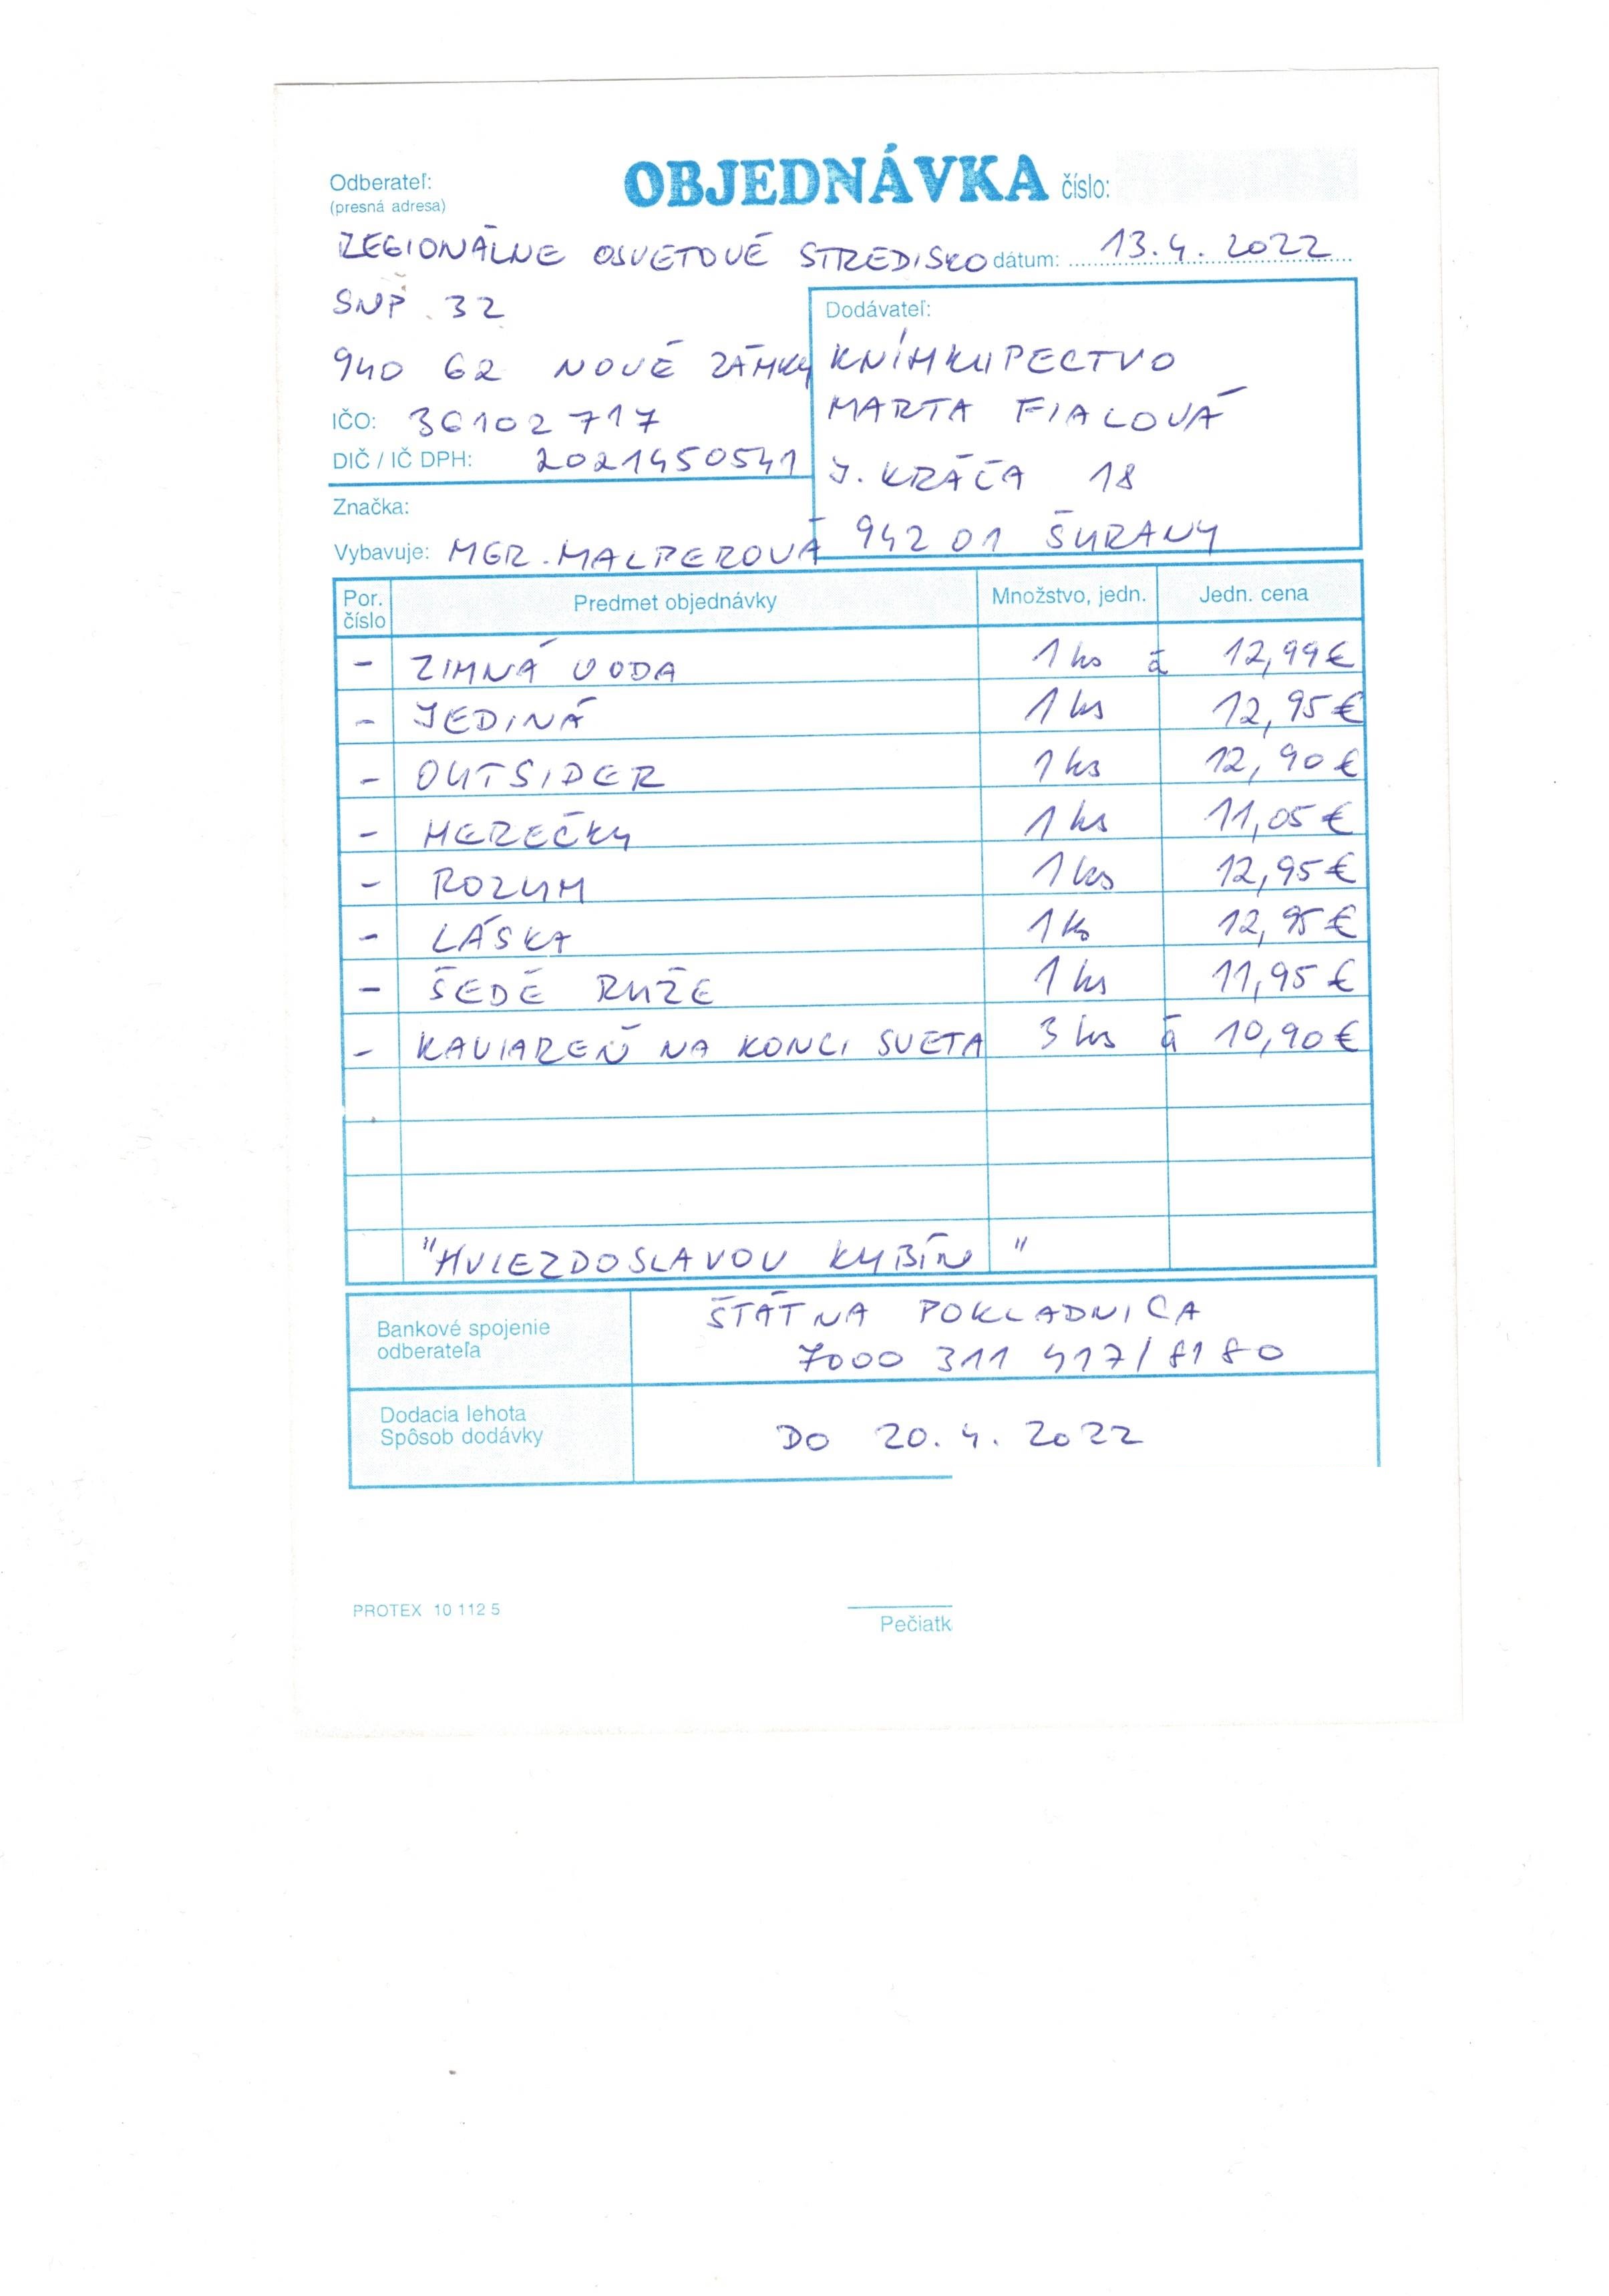 Odberateľ:
(presná adresa)
OBJEDNÁVKA číslo:
REGIONÁLNE OSVETOVÉ STREDISKO dátum: 13.4.2022
SNP 32
940 62 NOVÉ ZÁMKY
IČO: 36102717
DIČ / IČ DPH: 2021450541
Značka:
Vybavuje: MGR. MALPEROVÁ
Dodávateľ:
KNÍHKUPECTVO
MARTA FIALOVÁ
J. KRÁČA 18
942 01 ŠURANY
Por. číslo Predmet objednávky Množstvo, jedn. Jedn. cena
- ZIMNÁ VODA 1 ks á 12,99 €
- JEDINÁ 1 ks 12,95 €
- OUTSIDER 1 ks 12,90 €
- HEREČKY 1 ks 11,05 €
- ROZUM 1 ks 12,95 €
- LÁSKA 1 ks 12,95 €
- ŠEDÉ RUŽE 1 ks 11,95 €
- KAVIAREŇ NA KONCI SVETA 3 ks á 10,90 €
"HVIEZDOSLAVOV KUBÍN"
Bankové spojenie
odberateľa
ŠTÁTNA POKLADNICA
7000 311 417/8180
Dodacia lehota
Spôsob dodávky
DO 20.4.2022
PROTEX 10 112 5
Pečiatk